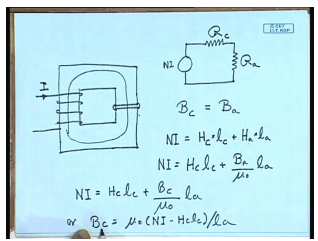 © CET
I.I.T. KGP
R_c
I
NI
R_a
B_c = B_a
NI = H_c·l_c + H_a·l_a
NI = H_c l_c + B_a/μ₀ l_a
NI = H_c l_c + B_c/μ₀ l_a
or B_c = μ₀(NI - H_c l_c)/l_a